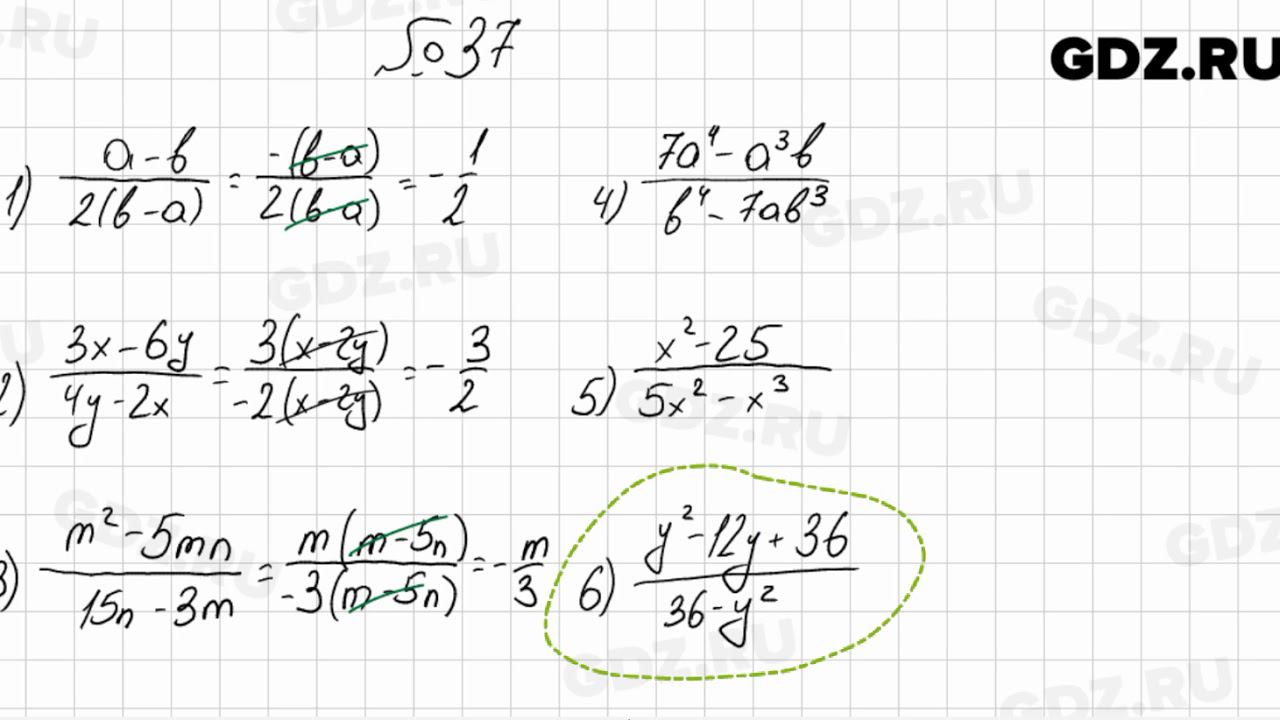 № 37
GDZ.RU
1) (a-b)/(2(b-a)) = (-(b-a))/(2(b-a)) = -1/2
4) (7a⁴-a³b)/(b⁴-7ab³)
2) (3x-6y)/(4y-2x) = (3(x-2y))/(-2(x-2y)) = -3/2
5) (x²-25)/(5x²-x³)
3) (m²-5mn)/(15n-3m) = (m(m-5n))/(-3(m-5n)) = -m/3
6) (y²-12y+36)/(36-y²)